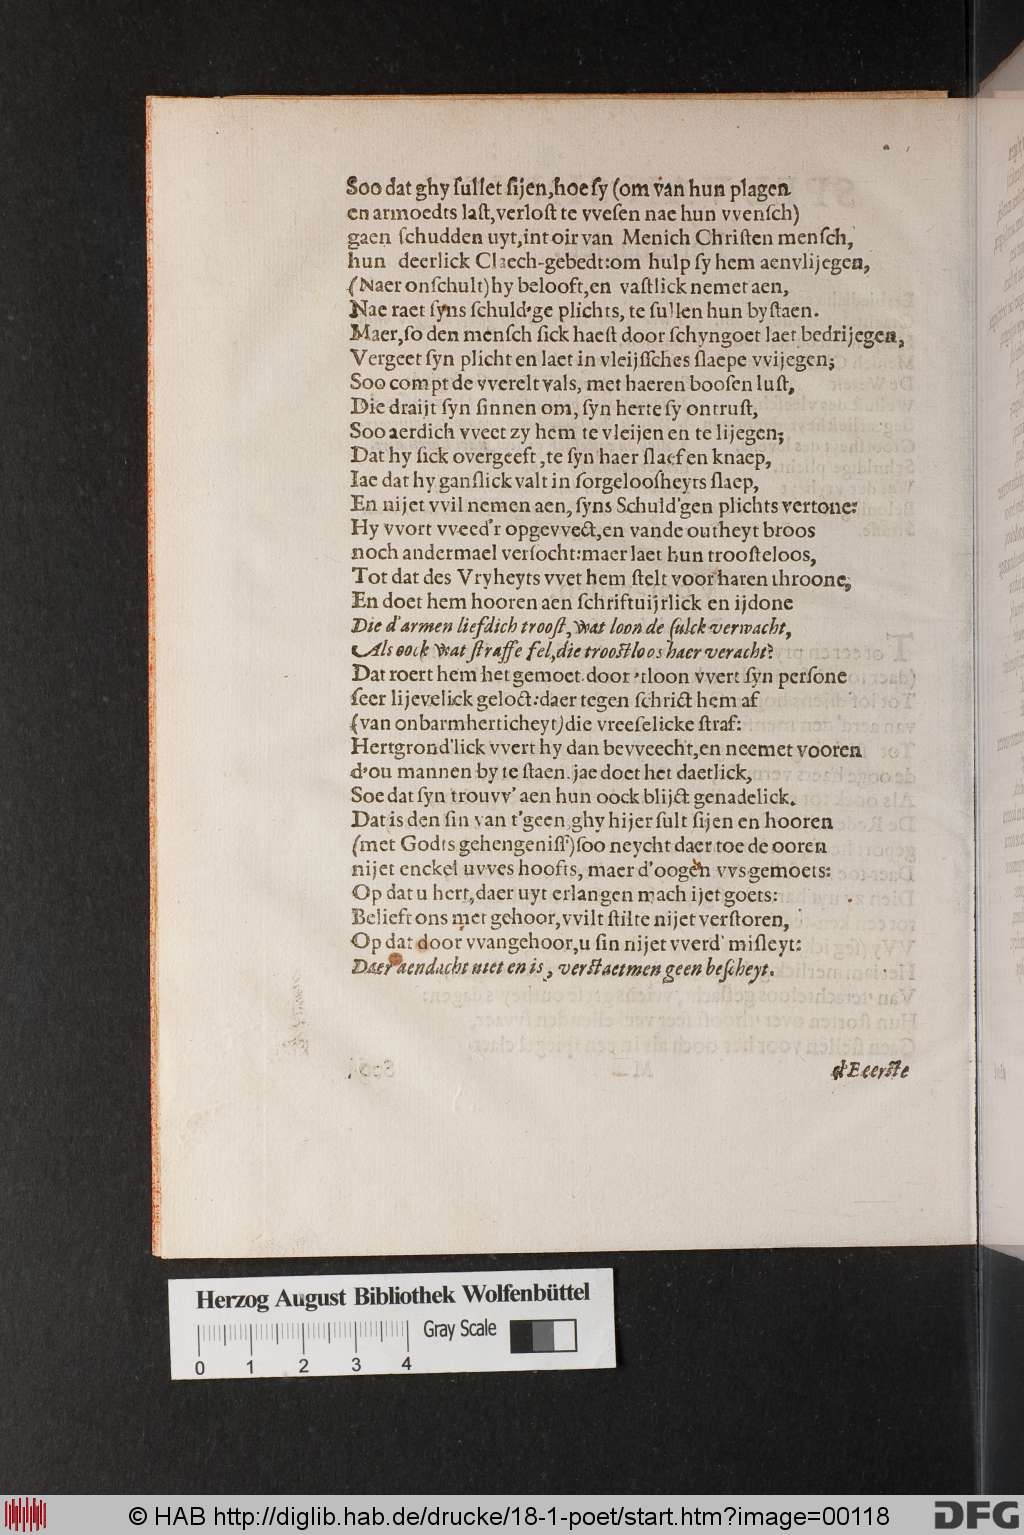 Soo dat ghy ſullet ſijen, hoe ſy (om van hun plagen
en armoedts laſt, verloſt te vveſen nae hun vvenſch)
gaen ſchudden uyt, int oir van Menich Chriſten menſch,
hun deerlick Claech-gebedt: om hulp ſy hem aenvlijegen,
(Naer onſchult) hy belooft, en vaſtlick nemet aen,
Nae raet ſyns ſchuld'ge plichts, te ſullen hun byſtaen.
Maer, ſo den menſch ſick haeſt door ſchyngoet laet bedrijegen,
Vergeet ſyn plicht en laet in vleijſſches ſlaepe vvijegen;
Soo compt de vverelt vals, met haeren booſen luſt,
Die draijt ſyn ſinnen om, ſyn herte ſy ontruſt,
Soo aerdich vveet zy hem te vleijen en te lijegen;
Dat hy ſick overgeeft, te ſyn haer ſlaef en knaep,
Iae dat hy ganſlick valt in ſorgelooſheyts ſlaep,
En nijet vvil nemen aen, ſyns Schuld'gen plichts vertone:
Hy vvort vveed'r opgevvect, en vande outheyt broos
noch andermael verſocht: maer laet hun trooſteloos,
Tot dat des Vryheyts vvet hem ſtelt voor haren throone,
En doet hem hooren aen ſchriftuijrlick en ijdone
Die d'armen liefdich trooſt, wat loon de ſulck verwacht,
Als oock wat ſtraffe fel, die trooſtloos haer veracht?
Dat roert hem het gemoet door 'tloon vvert ſyn perſone
ſeer lijevelick geloct: daer tegen ſchrict hem af
(van onbarmherticheyt) die vreeſelicke ſtraf:
Hertgrond'lick vvert hy dan bevveecht, en neemet vooren
d'ou mannen by te ſtaen. jae doet het daetlick,
Soe dat ſyn trouvv' aen hun oock blijct genadelick.
Dat is den ſin van t'geen ghy hijer ſult ſijen en hooren
(met Godts gehengeniſſ) ſoo neycht daer toe de ooren
nijet enckel uvves hoofts, maer d'oogen vvs gemoets:
Op dat u hert, daer uyt erlangen mach ijet goets:
Belieft ons met gehoor, vvilt ſtilte nijet verſtoren,
Op dat door vvangehoor, u ſin nijet vverd' miſleyt:
Daer aendacht niet en is, verſtaetmen geen beſcheyt.
d'Eerſte
Herzog August Bibliothek Wolfenbüttel
Gray Scale
0 1 2 3 4
© HAB http://diglib.hab.de/drucke/18-1-poet/start.htm?image=00118
DFG